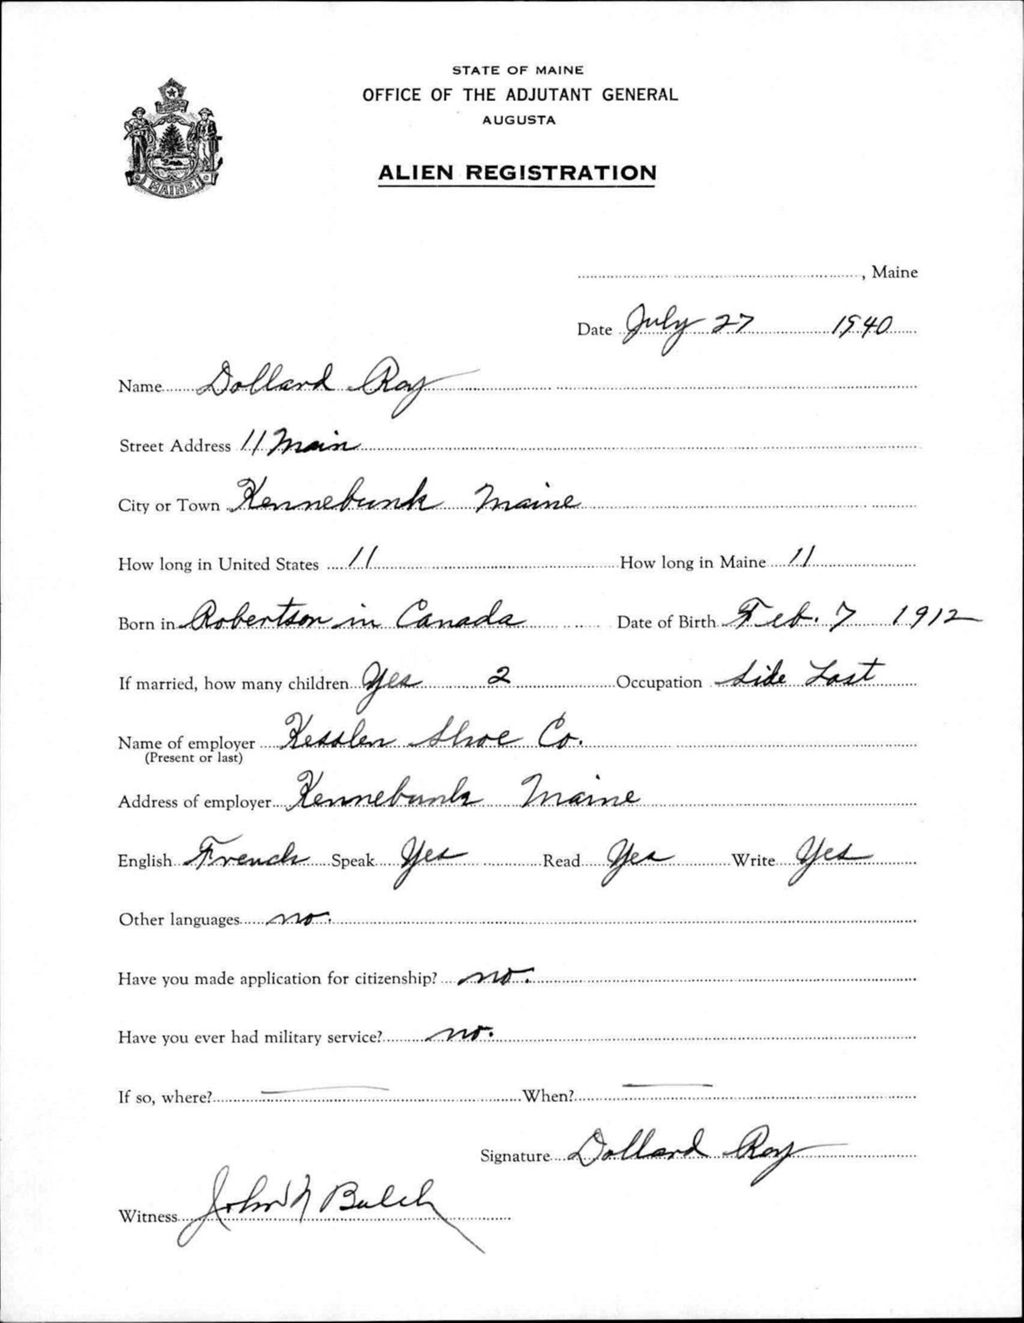 STATE OF MAINE
OFFICE OF THE ADJUTANT GENERAL
AUGUSTA
ALIEN REGISTRATION
MAINE
, Maine
Date July 27 1940
Name Dollard Roy
Street Address 11 Main
City or Town Kennebunk Maine
How long in United States 11 How long in Maine 11
Born in Robertson in Canada Date of Birth Feb. 7 1912
If married, how many children Yes 2 Occupation Side Last
Name of employer Kesslen Shoe Co.
(Present or last)
Address of employer Kennebunk Maine
English French Speak Yes Read Yes Write Yes
Other languages no.
Have you made application for citizenship? no.
Have you ever had military service? no.
If so, where? When?
Signature Dollard Roy
Witness John N Balch